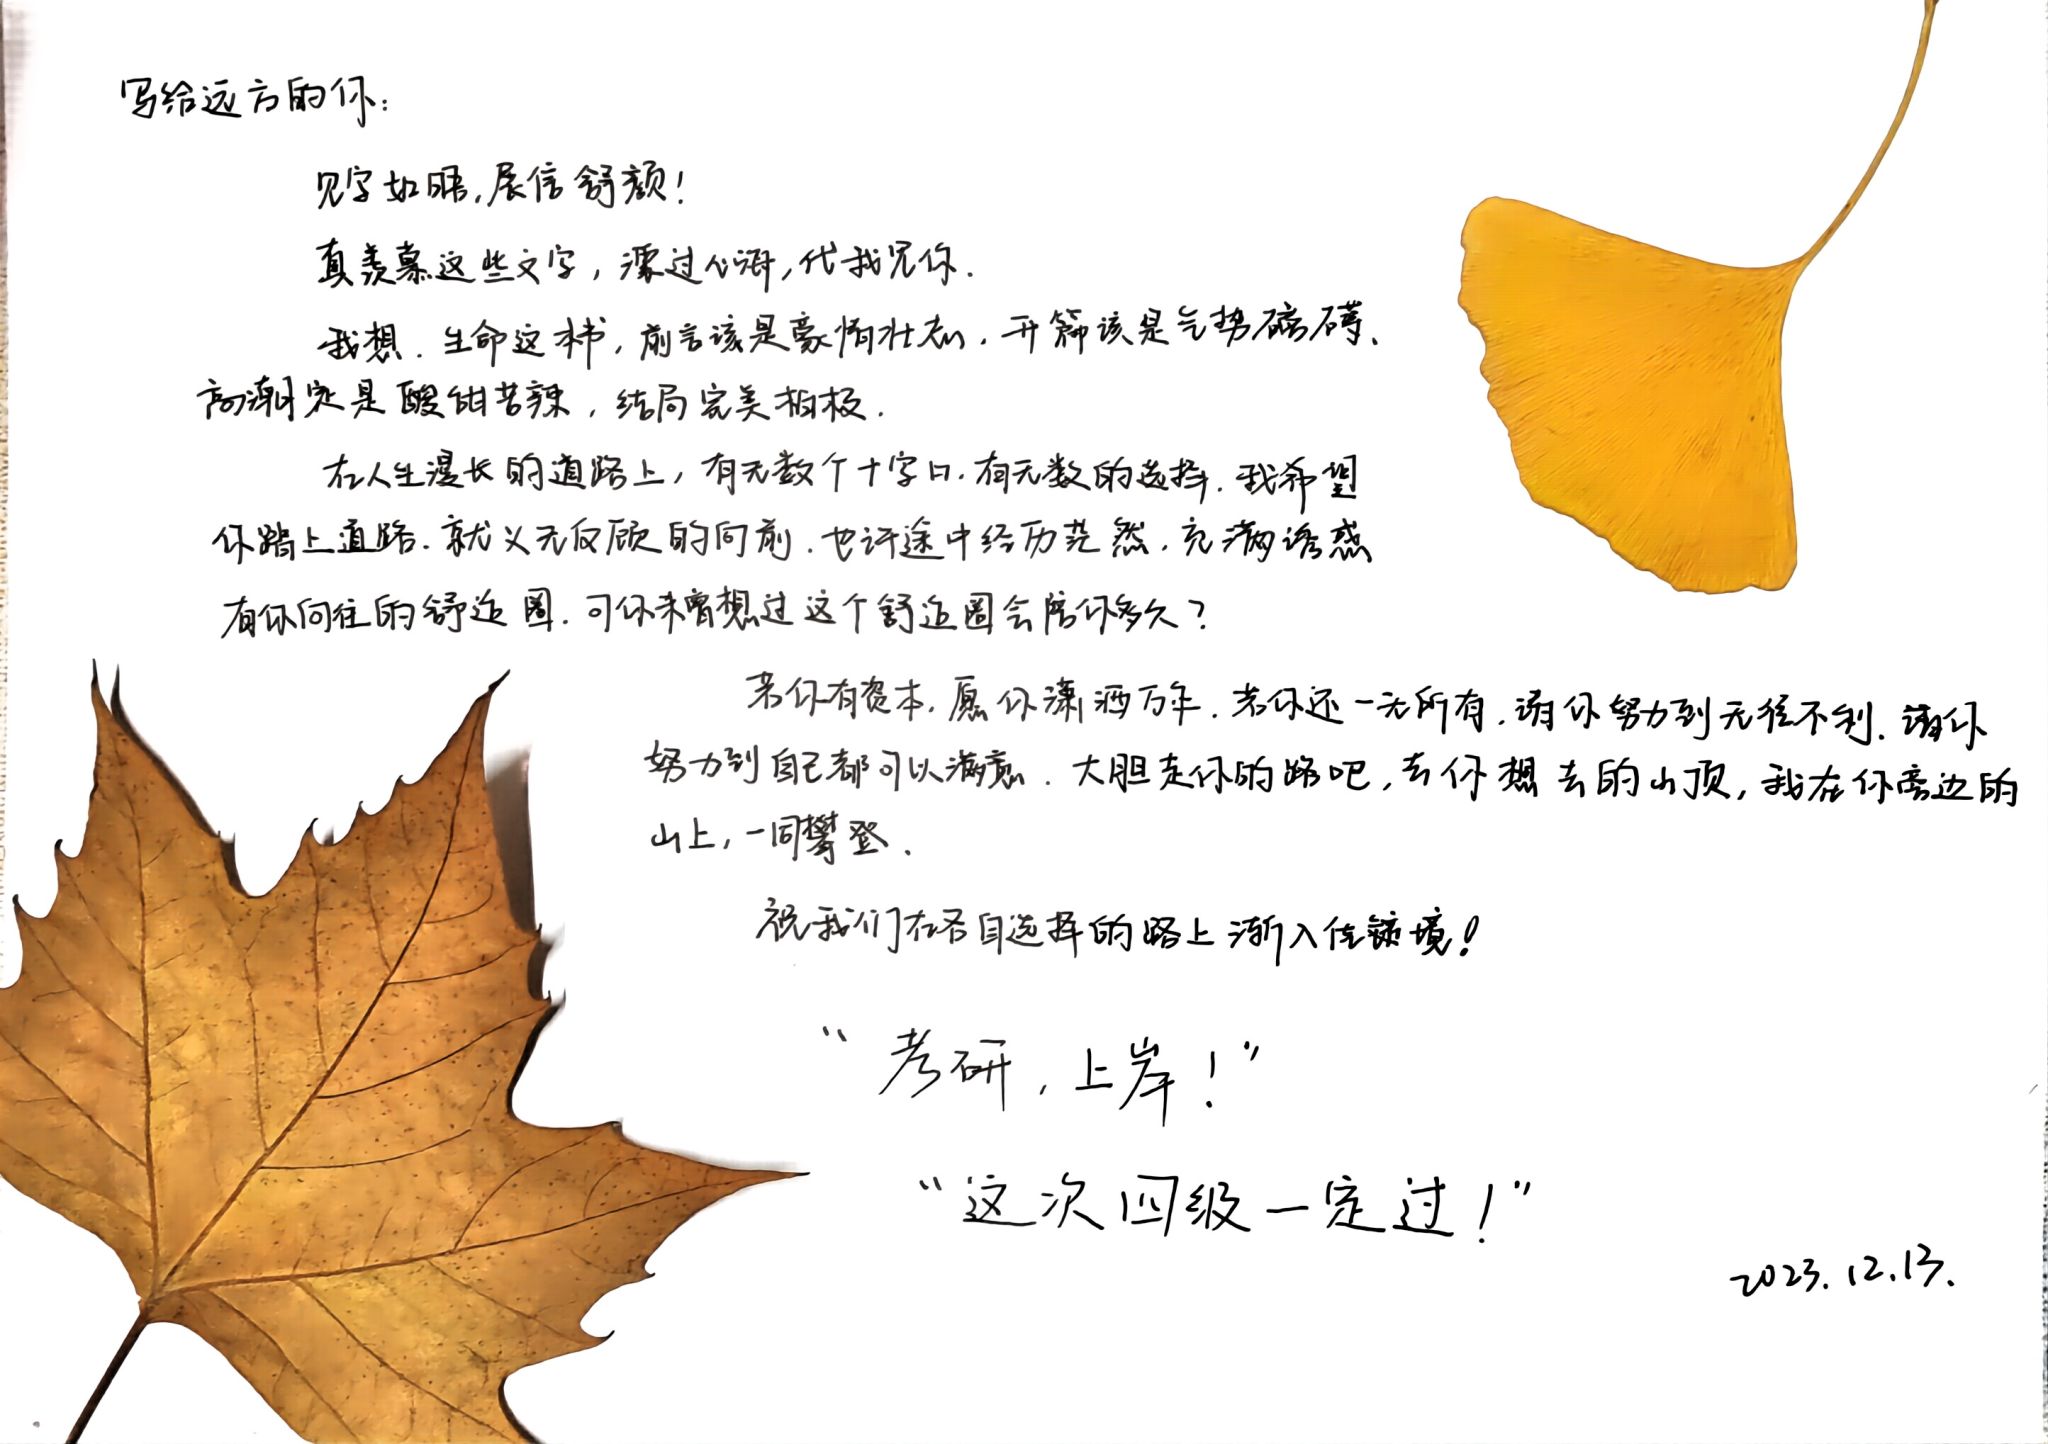 写给远方的你：
见字如晤，展信舒颜！
真羡慕这些文字，漂过心海，代我见你.
我想.生命这本书，前言该是豪情壮志，开篇该是气势磅礴、
高潮定是酸甜苦辣，结局完美相极.
在人生漫长的道路上，有无数个十字口，有无数的选择.我希望
你踏上道路.就义无反顾的向前.也许途中经历茫然，充满诱惑
有你向往的舒适圈.可你未曾想过这个舒适圈会陪你多久？
若你有资本，愿你潇洒万年.若你还一无所有，请你努力到无往不利.请你
努力到自己都可以满意.大胆走你的路吧，去你想去的山顶，我在你旁边的
山上，一同攀登.
祝我们在各自选择的路上渐入佳境！
“考研，上岸！”
“这次四级一定过！”
2023.12.13.